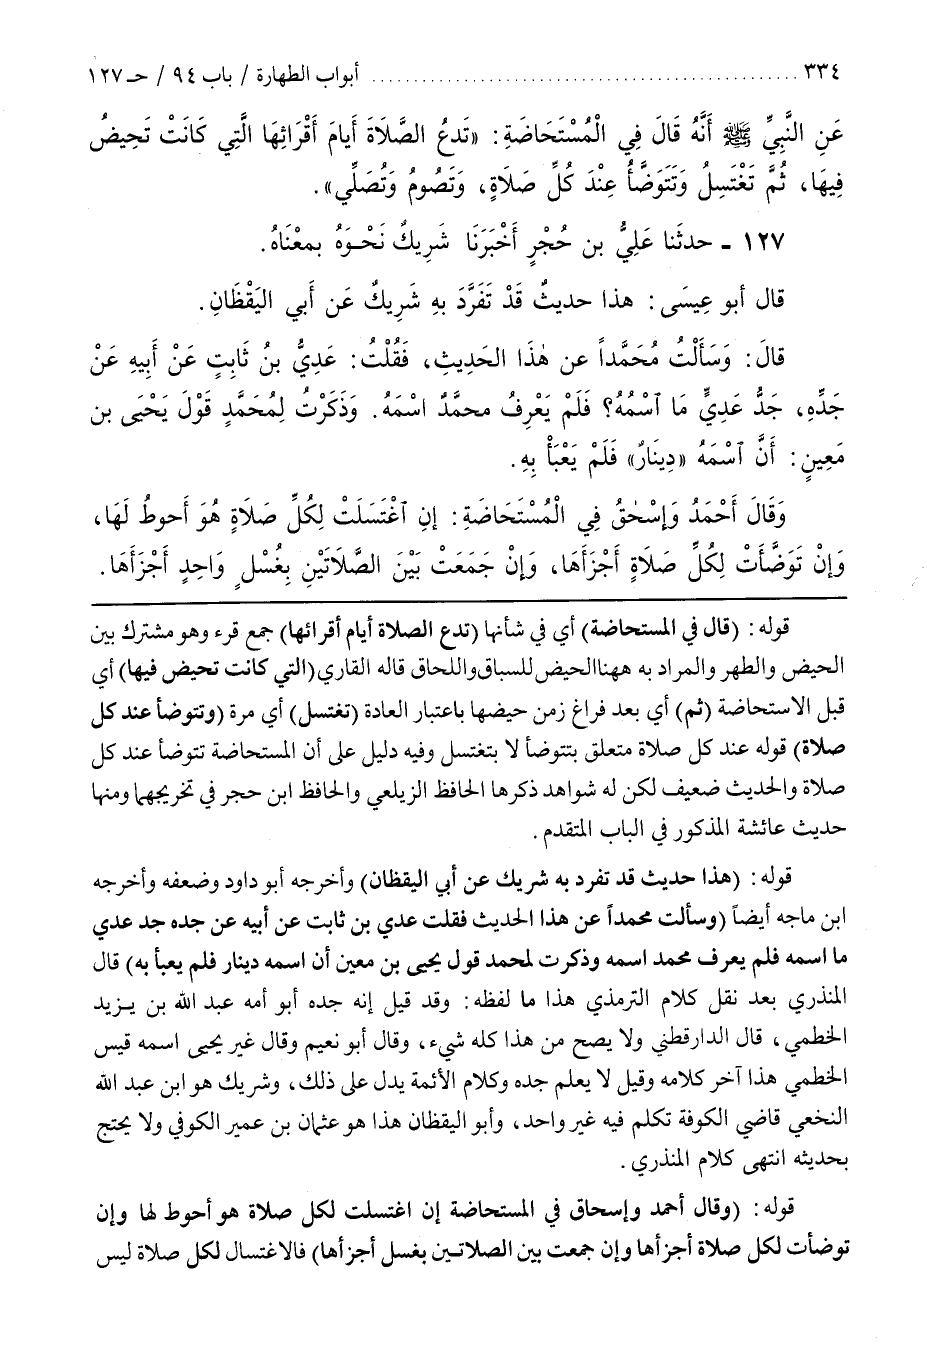 ٣٣٤ .................................................... أبواب الطهارة / باب ٩٤ / حـ ١٢٧
عَنِ النَّبِيِّ ﷺ أَنَّهُ قَالَ فِي الْمُسْتَحَاضَةِ: «تَدعُ الصَّلَاةَ أَيامَ أَقْرَائِهَا الَّتِي كَانَتْ تَحِيضُ
فِيهَا، ثُمَّ تَغْتَسِلُ وَتَتَوَضَّأُ عِنْدَ كُلِّ صَلَاةٍ، وَتَصُومُ وَتُصَلِّي».
١٢٧ ـ حدثَنا عَلِيُّ بن حُجْرٍ أَخْبَرَنَا شَرِيكٌ نَحْـوَهُ بمعْنَاهُ.
قال أبو عِيسَى: هذا حديثٌ قَدْ تَفَرَّدَ بهِ شَرِيكٌ عَن أَبي اليَقْظَانِ.
قالَ: وَسَأَلْتُ مُحَمَّداً عن هٰذَا الحَدِيثِ، فَقُلْتُ: عَدِيُّ بنُ ثَابِتٍ عَنْ أَبِيهِ عَنْ
جَدِّهِ، جَدُّ عَدِيٍّ مَا ٱسْمُهُ؟ فَلَمْ يَعْرِفُ محمَّدٌ اسْمَهُ. وَذَكَرْتُ لِمُحَمَّدٍ قَوْلَ يَحْيَى بن
مَعِينٍ: أَنَّ ٱسْمَهُ «دِينَارٌ» فَلَمْ يَعْبَأْ بِهِ.
وَقَالَ أَحْمَدُ وَإِسْحٰقُ فِي الْمُسْتَحَاضَةِ: إِنِ ٱغْتَسَلَتْ لِكُلِّ صَلَاةٍ هُوَ أَحوطُ لَهَا،
وَإِنْ تَوَضَّأَتْ لِكُلِّ صَلَاةٍ أَجْزَأَهَا، وَإِنْ جَمَعَتْ بَيْنَ الصَّلَاتَيْنِ بِغُسْلٍ وَاحِدٍ أَجْزَأَهَا.
قوله: (قال في المستحاضة) أي في شأنها (تدع الصلاة أيام أقرائها) جمع قرء وهو مشترك بين
الحيض والطهر والمراد به ههنا الحيض للسباق واللحاق قاله القاري (التي كانت تحيض فيها) أي
قبل الاستحاضة (ثم) أي بعد فراغ زمن حيضها باعتبار العادة (تغتسل) أي مرة (وتتوضأ عند كل
صلاة) قوله عند كل صلاة متعلق بتتوضأ لا بتغتسل وفيه دليل على أن المستحاضة تتوضأ عند كل
صلاة والحديث ضعيف لكن له شواهد ذكرها الحافظ الزيلعي والحافظ ابن حجر في تخريجهما ومنها
حديث عائشة المذكور في الباب المتقدم.
قوله: (هذا حديث قد تفرد به شريك عن أبي اليقظان) وأخرجه أبو داود وضعفه وأخرجه
ابن ماجه أيضاً (وسألت محمداً عن هذا الحديث فقلت عدي بن ثابت عن أبيه عن جده جد عدي
ما اسمه فلم يعرف محمد اسمه وذكرت لمحمد قول يحيى بن معين أن اسمه دينار فلم يعبأ به) قال
المنذري بعد نقل كلام الترمذي هذا ما لفظه: وقد قيل إنه جده أبو أمه عبد الله بن يـزيد
الخطمي، قال الدارقطني ولا يصح من هذا كله شيء، وقال أبو نعيم وقال غير يحيى اسمه قيس
الخطمي هذا آخر كلامه وقيل لا يعلم جده وكلام الأئمة يدل على ذلك، وشريك هو ابن عبد الله
النخعي قاضي الكوفة تكلم فيه غير واحد، وأبو اليقظان هذا هو عثمان بن عمير الكوفي ولا يحتج
بحديثه انتهى كلام المنذري.
قوله: (وقال أحمد وإسحاق في المستحاضة إن اغتسلت لكل صلاة هو أحوط لها وإن
توضأت لكل صلاة أجزأها وإن جمعت بين الصلاتـين بغسل أجزأها) فالاغتسال لكل صلاة ليس